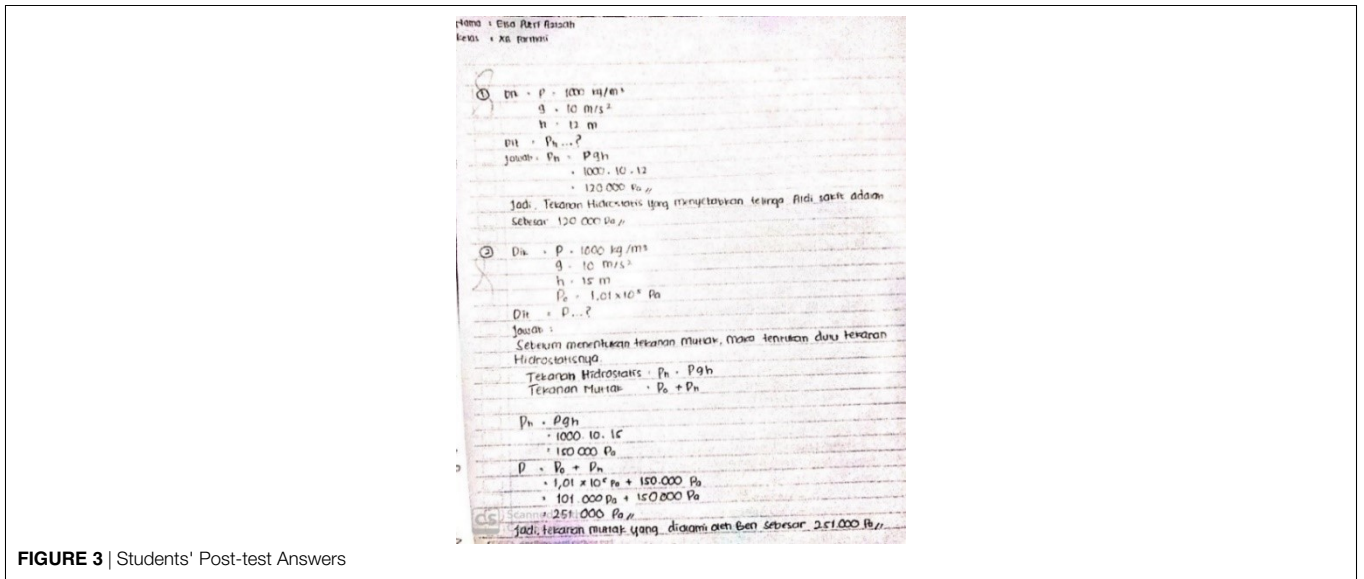 Nama :
Kelas :
① Dik : ρ = 1000 kg/m³
g = 10 m/s²
h = 12 m
Dit : Ph ...?
Jawab : Ph = ρgh
= 1000 . 10 . 12
= 120.000 Pa //
Jadi, Tekanan Hidrostatis yang menyebabkan telinga Ardi sakit adalah
Sebesar 120 000 Pa //
② Dik : ρ = 1000 kg/m³
g = 10 m/s²
h = 15 m
P₀ = 1,01 x 10⁵ Pa
Dit : P...?
Jawab :
Sebelum menentukan tekanan mutlak, maka tentukan dulu tekanan
Hidrostatisnya
Tekanan Hidrostatis : Ph = ρgh
Tekanan Mutlak : P₀ + Ph
Ph = ρgh
= 1000 . 10 . 15
= 150 000 Pa
P = P₀ + Ph
= 1,01 x 10⁵ Pa + 150.000 Pa
= 101.000 Pa + 150 000 Pa
= 251.000 Pa //
Jadi, tekanan mutlak yang dialami oleh Ben sebesar 251.000 Pa //
CS Scanned
FIGURE 3 | Students' Post-test Answers